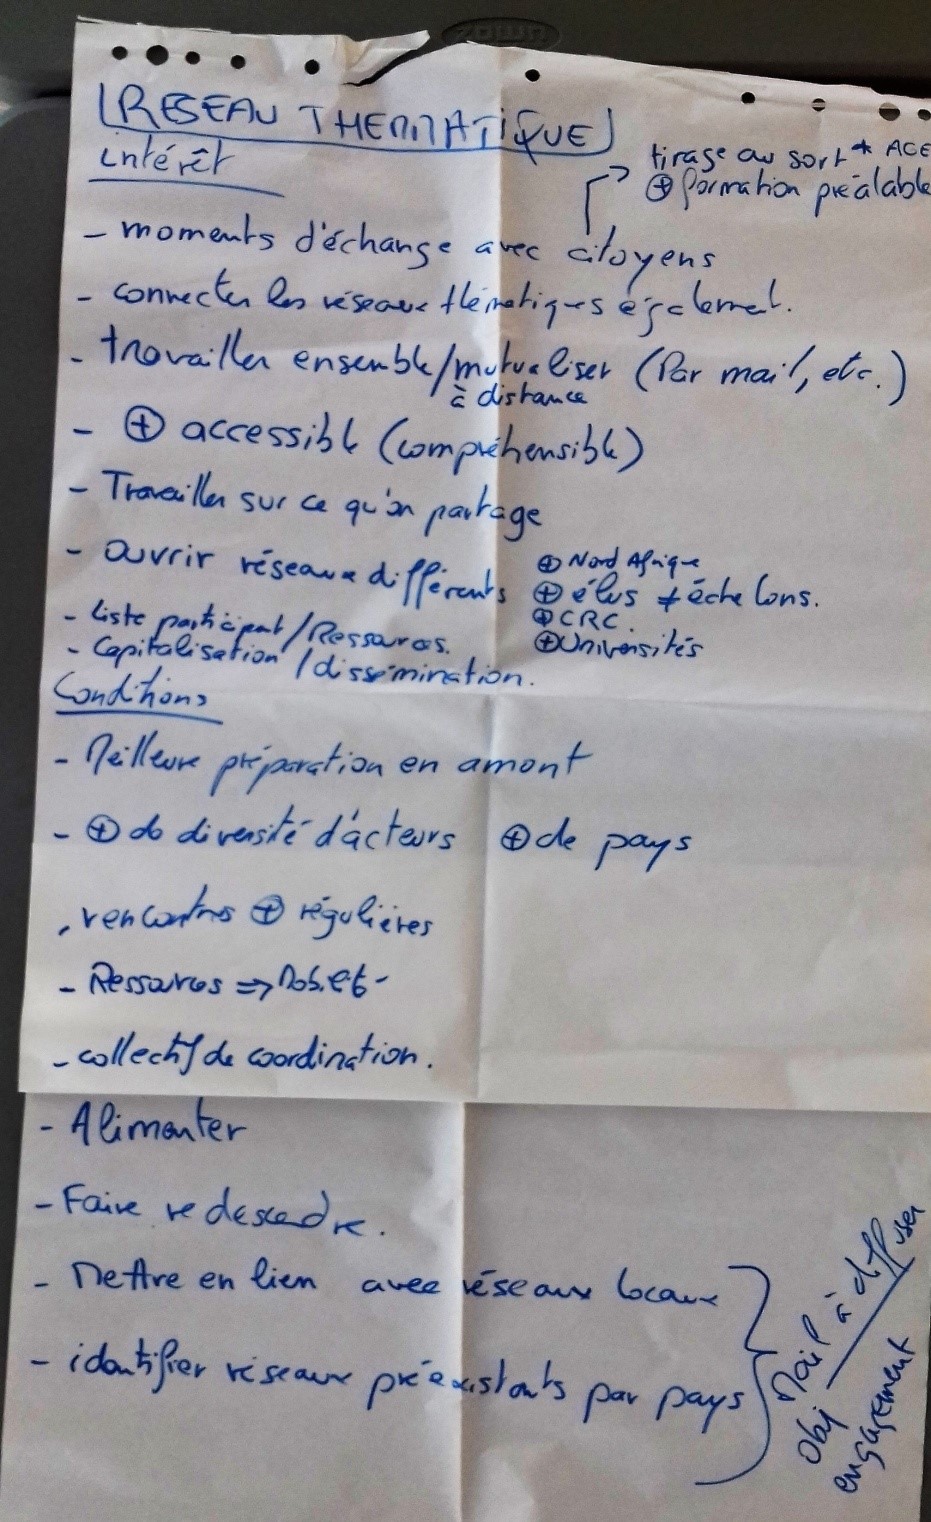 ZOWN
RESEAU THEMATIQUE
intérêt
tirage au sort * ACE
⊕ formation préalable
- moments d'échange avec citoyens
- connecter les réseaux thématiques également.
- travailler ensemble/mutualiser (Par mail, etc.)
à distance
- ⊕ accessible (compréhensible)
- Travailler sur ce qu'on partage
- ouvrir réseaux différents
⊕ Nord Afrique
⊕ élus ≠ échelons.
⊕ CRC.
⊕ Universités
- Liste participant/Ressources.
- Capitalisation/dissémination.
Conditions
- Meilleure préparation en amont
- ⊕ de diversité d'acteurs ⊕ de pays
- rencontres ⊕ régulières
- Ressources ⇒
- collectif de coordination.
- Alimenter
- Faire redescendre.
- Mettre en lien avec réseaux locaux
- identifier réseaux préexistants par pays
Mail à diffuser
obj engagement